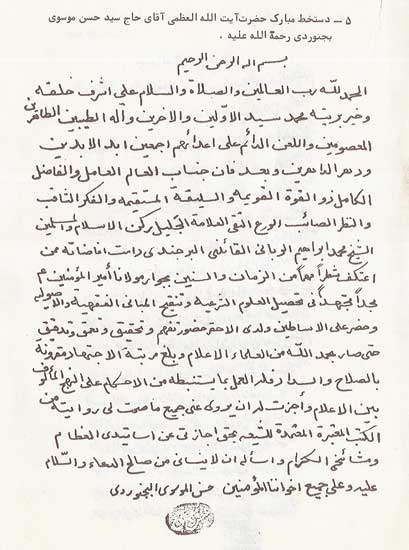 ۵ – دستخط مبارک حضرت آیت الله العظمی آقای حاج سید حسن موسوی
بجنوردی رحمة الله علیه .
بسم الله الرحمن الرحیم
الحمد لله رب العالمین والصلاة والسلام علی اشرف خلقه
وخیر بریته محمد سید الاولین والاخرین وآله الطیبین الطاهرین
المعصومین واللعن الدائم علی اعدائهم اجمعین ابد الابدین
ودهر الداهرین وبعد فان جناب العالم العامل والفاضل
الکامل ذو القوة القویمه والسلیقة المستقیمه والفکر الثاقب
والنظر الصائب الورع التقی العلامة الجلیل رکن الاسلام والمسلمین
الشیخ محمد ابراهیم الربانی القائنی البرجندی دامت افاضاته ممن
اعتکف شطراً مهماً من الزمان والسنین بجوار مولانا أمیر المؤمنین ع
مجداً مجتهداً فی تحصیل العلوم الشرعیة وتنقیح المبانی الفقهیة والاصولیة
وحضر علی الاساطین ولدی الاحقر حضور تفهم وتحقیق وتعمق وتدقیق
حتی صار بحمد الله من العلماء الاعلام وبلغ مرتبة الاجتهاد مقرونة
بالصلاح والسداد فله العمل بما یستنبطه من الاحکام علی النهج المألوف
بین الاعلام وأجزت له ان یروی عنی جمیع ما صحت لی روایته من
الکتب المعتبرة المعتمدة للشیعه بحق اجازتی عن اساتیدی العظام
ومشائخی الکرام واسأله ان لا ینسانی من صالح الدعاء والسلام
علیه وعلی جمیع اخواننا المؤمنین حسن الموسوی البجنوردی